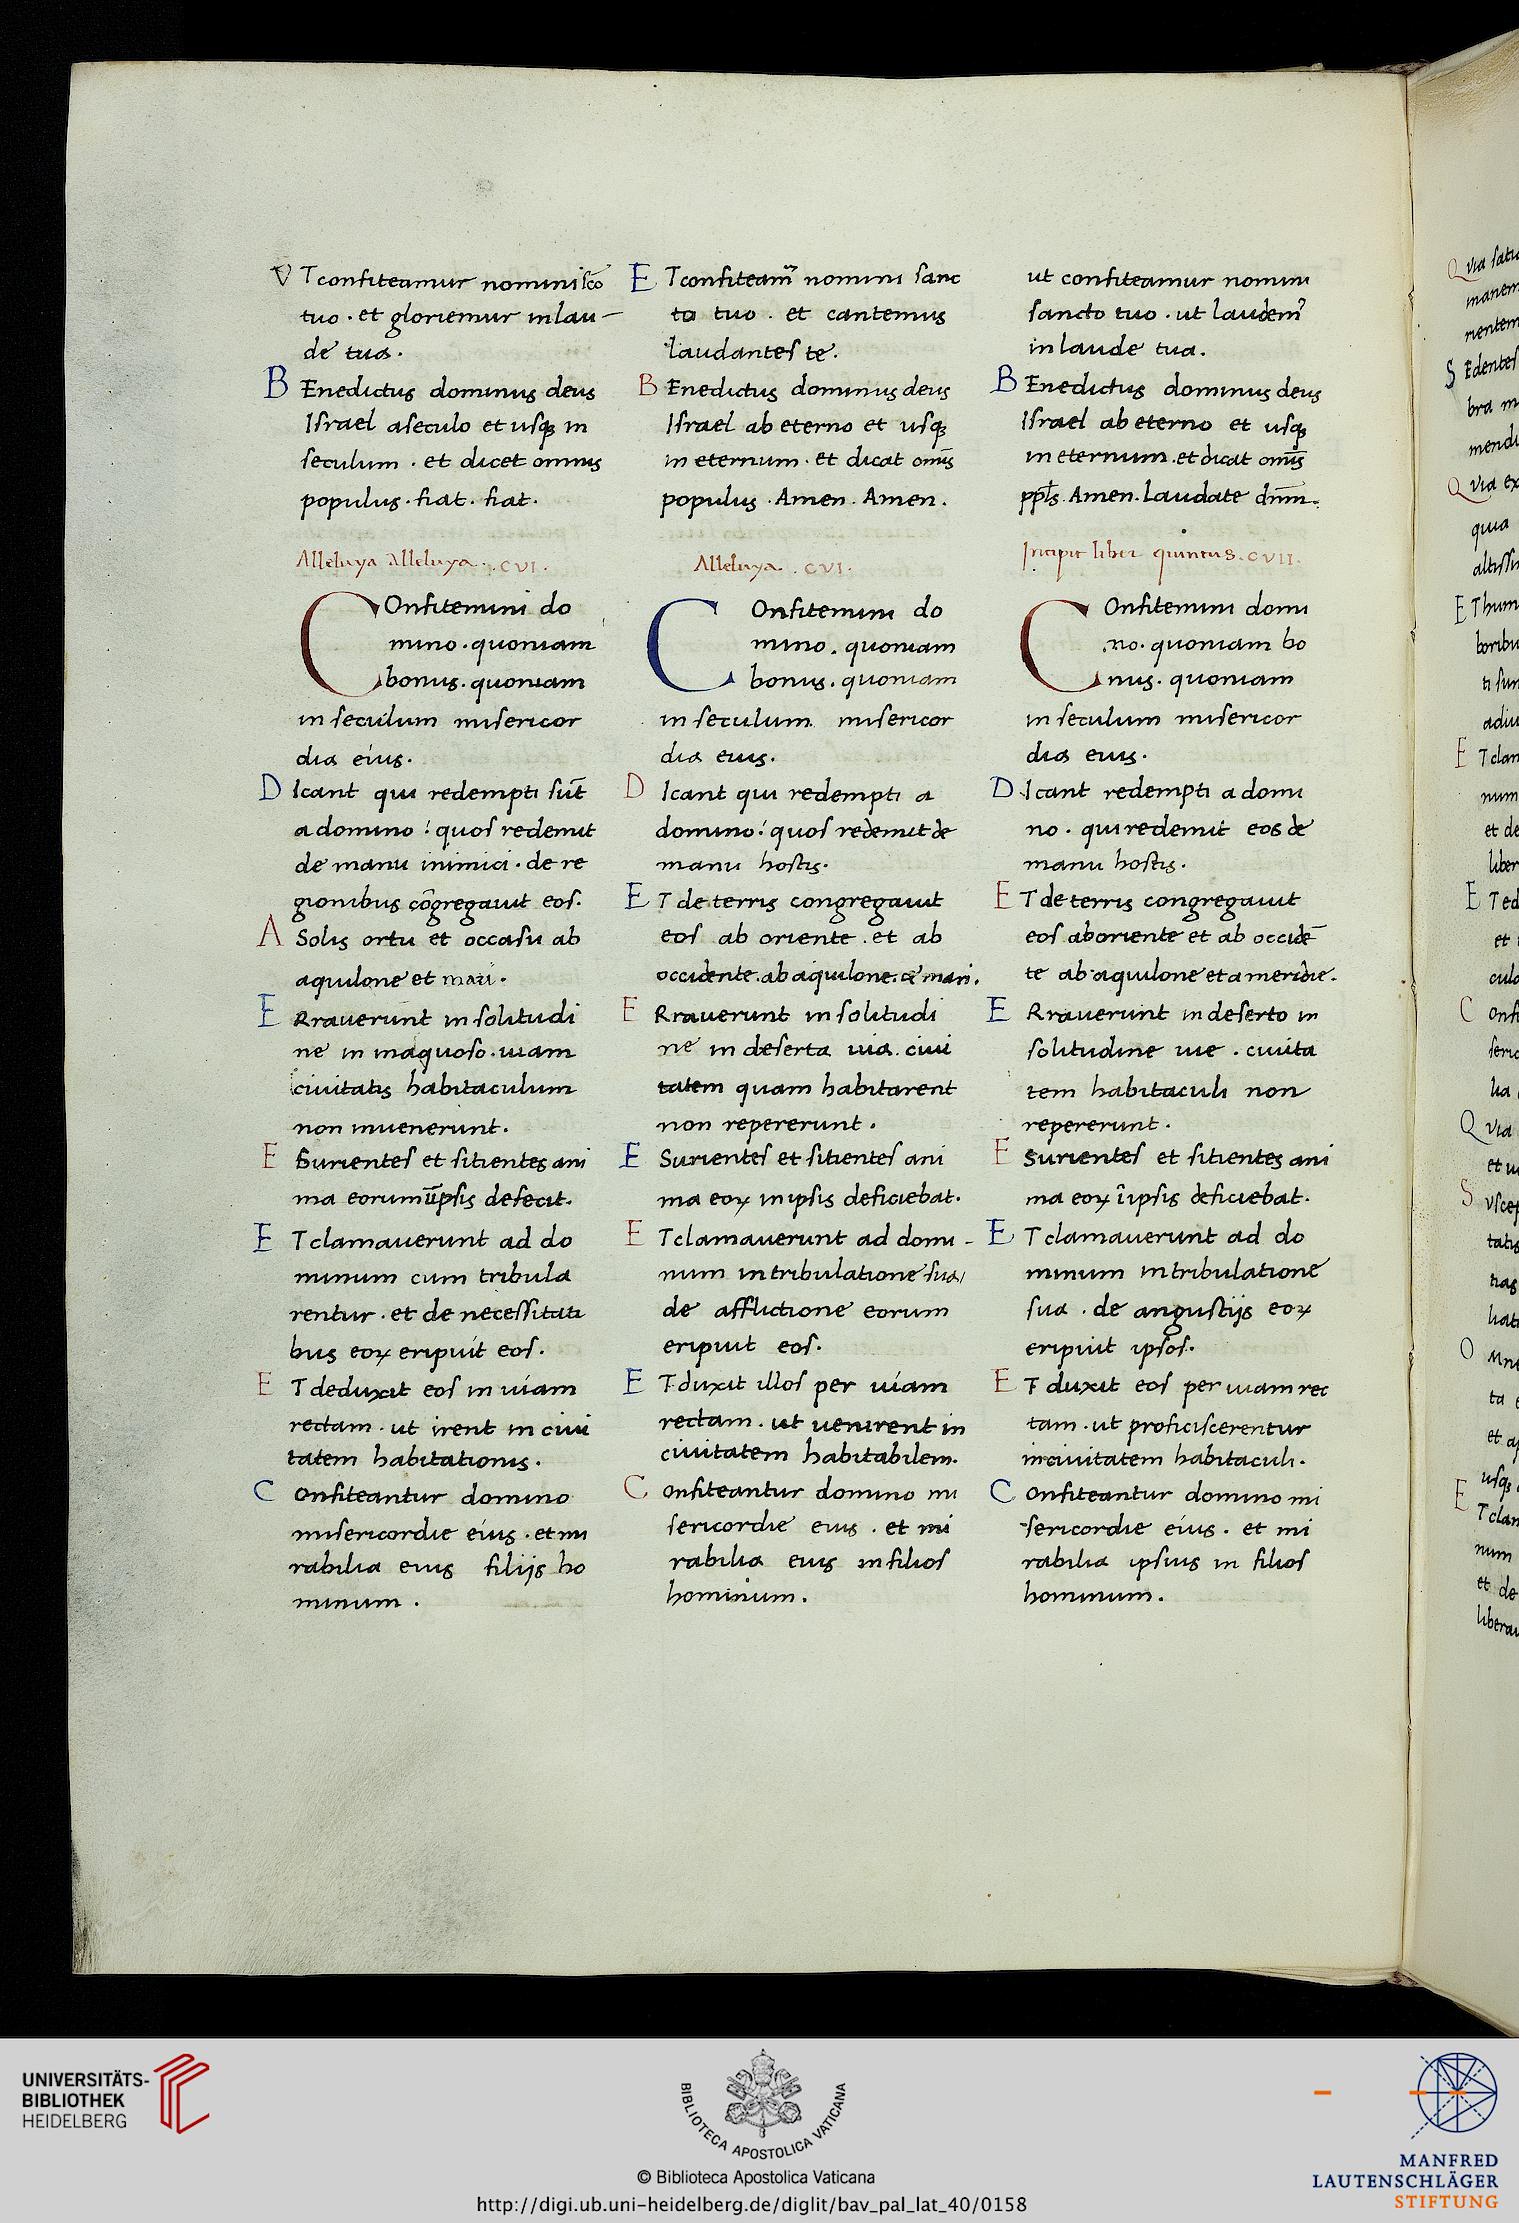 UT confiteamur nomini sc̄o
tuo · et gloriemur in lau-
de tua ·
BEnedictus dominus deus
Israel a seculo et usqꝫ in
seculum · et dicet omnis
populus · fiat · fiat ·
Alleluya Alleluya · CVI ·
COnfitemini do
mino · quoniam
bonus · quoniam
in seculum misericor
dia eius ·
DIcant qui redempti sūt
a domino : quos redemit
de manu inimici · de re
gionibus cōgregauit eos ·
A Solis ortu et occasu ab
aquilone et mari ·
ERrauerunt in solitudi
ne in inaquoso · uiam
ciuitatis habitaculum
non inuenerunt ·
ESurientes et sitientes ani
ma eorum ī ipsis defecit ·
ET clamauerunt ad do
minum cum tribula
rentur · et de necessitati
bus eoꝝ eripuit eos ·
ET deduxit eos in uiam
rectam · ut irent in ciui
tatem habitationis ·
Confiteantur domino
misericordie eius · et mi
rabilia eius filijs ho
minum ·
ET confiteam᷑ nomini sanc
to tuo · et cantemus
laudantes te ·
BEnedictus dominus deus
Israel ab eterno et usqꝫ
in eternum · et dicat omīs
populus · Amen · Amen ·
Alleluya · CVI ·
COnfitemini do
mino · quoniam
bonus · quoniam
in seculum misericor
dia eius ·
DIcant qui redempti a
domino : quos redemit de
manu hostis ·
ET de terris congregauit
eos ab oriente · et ab
occidente · ab aquilone · et mari ·
ERrauerunt in solitudi
ne in deserta uia · ciui
tatem quam habitarent
non repererunt ·
ESurientes et sitientes ani
ma eoꝝ in ipsis deficiebat ·
ET clamauerunt ad domi-
num in tribulatione sua /
de afflictione eorum
eripuit eos ·
ET duxit illos per uiam
rectam · ut uenirent in
ciuitatem habitabilem ·
Confiteantur domino mi
sericordie eius · et mi
rabilia eius in filios
hominum ·
ut confiteamur nomini
sancto tuo · ut laudem᷑
in laude tua ·
BEnedictus dominus deus
Israel ab eterno et usqꝫ
in eternum · et dicat omīs
ppl̄s · Amen · Laudate dnm̄ ·
Incipit liber quintus · CVII ·
COnfitemini domi
no · quoniam bo
nus · quoniam
in seculum misericor
dia eius ·
DIcant redempti a domi
no · qui redemit eos de
manu hostis ·
ET de terris congregauit
eos ab oriente et ab occidē
te ab aquilone et a meridie ·
ERrauerunt in deserto in
solitudine uie · ciuita
tem habitaculi non
repererunt ·
ESurientes et sitientes ani
ma eoꝝ ī ipsis deficiebat ·
ET clamauerunt ad do
minum in tribulatione
sua · de angustijs eoꝝ
eripuit ipsos ·
ET duxit eos per uiam rec
tam · ut proficiscerentur
in ciuitatem habitaculi ·
Confiteantur domino mi
sericordie eius · et mi
rabilia ipsius in filios
hominum ·
UNIVERSITÄTS-
BIBLIOTHEK
HEIDELBERG
BIBLIOTECA APOSTOLICA VATICANA
© Biblioteca Apostolica Vaticana
http://digi.ub.uni-heidelberg.de/diglit/bav_pal_lat_40/0158
MANFRED
LAUTENSCHLÄGER
STIFTUNG